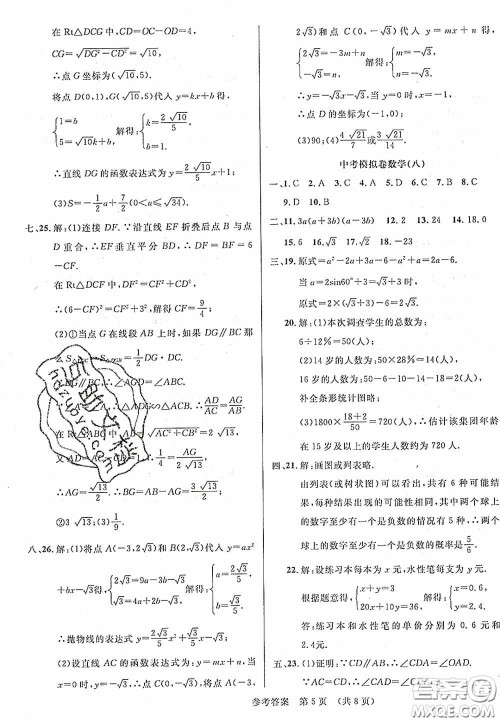 在 Rt△DCG 中,CD=OC-OD=4,
CG=√(DG²-CD²)=√10,
∴点 G 坐标为(-√10,5).
将点 D(0,1),G(√10,5)代入 y=kx+b,
{1=b 5=√10k+b 解得:{k=2√10/5, b=1.
∴直线 DG 的函数表达式为 y=2√10/5 x+1;
(3)S=-1/2 a+7/2(0<a≤√34).
七、25.解:(1)连接 DF.∵沿直线 EF 折叠后点 B 与点
D 重合,∴EF 垂直平分 BD,∴DF=BF=6
-CF.
在 Rt△DCF 中,CD²+CF²=DF²,
∴(6-CF)²=CF²+3²,解得:CF=9/4;
(2)①当点 G 在线段 AB 上时,如果 DG∥BC 即
DG·DC.
DG∥BC.∴△AGD∽△ABC.∴AD/AC=AG/AB=1/2.
在 Rt△ABC 中,AB=√(AC²+CB²)=2√13.
∴AG=√13.∴BG=AB-AG=√13;
②3√13;(3)1.
八、26.解:(1)将点 A(-3,2√3)和 B(2,√3)代入 y=ax²
+bx-√3 得:{2√3=9a-3b-√3 √3=4a+2b-√3 解得:
∴抛物线的表达式为 y=√3/3 x²+√3/3 x-√3;
(2)设直线 AC 的函数表达式为 y=mx+n,将
A(-3,
2√3)和 C(0,-√3)代入 y=mx+n 得:
{2√3=-3m+n -√3=n 解得:{m=-√3 n=-√3.
∴y=-√3x-√3.当 y=0 时,x=-1,
∴点 D 的坐标为(-1,0);
(3)90;4√21/7或3√21/14.
中考模拟卷数学(八)
一、1.C 2.A 3.A 4.C 5.D 6.C 7.B 8.C
9.D 10.B
二、11.3a(a+3b)(a-3b) 12.2 13.24 14.18.0
15.6 16.√3 17.√2 18.-23
三、19.原式=a²-2a+1-a²+2a+a²-3=a²-2,
当 a=2sin60°+3=√3+3 时,
原式=(√3+3)²-2=10+6√3.
20.解:(1)本次调查学生的总数为:
6÷12%=50(人);
(2)14 岁的人数为:50×28%=14(人),
16 岁的人数为:50-6-10-14-18=2(人),
补全条形统计图略;
(3)1800×(18+2)/50=720(人),∴估计该集团年龄
在 15 岁及以上的学生人数约为 720 人.
四、21.解:画图或列表略.
由列表(或树状图)可以看出,共有 6 种可能,
每种结果出现的可能性相同,其中两个球上
的数字至少有一个是负数的情况有 5 种,∴两个
球上的数字至少有一个是负数的概率是5/6.
22.解:设练习本每本 x 元,水性笔每支为 y 元,
根据题意得:{x+y=3 20x+10y=36,解得:{x=0.6 y=2.4.
答:练习本和水性笔的单价分别为 0.6 元和
2.4 元.
五、23.(1)证明:∵CD∥OA,∴∠CDA=∠OAD.
∵AC∥OD,∴∠CAD=∠ODA.
参考答案 第 5 页 (共 8 页)